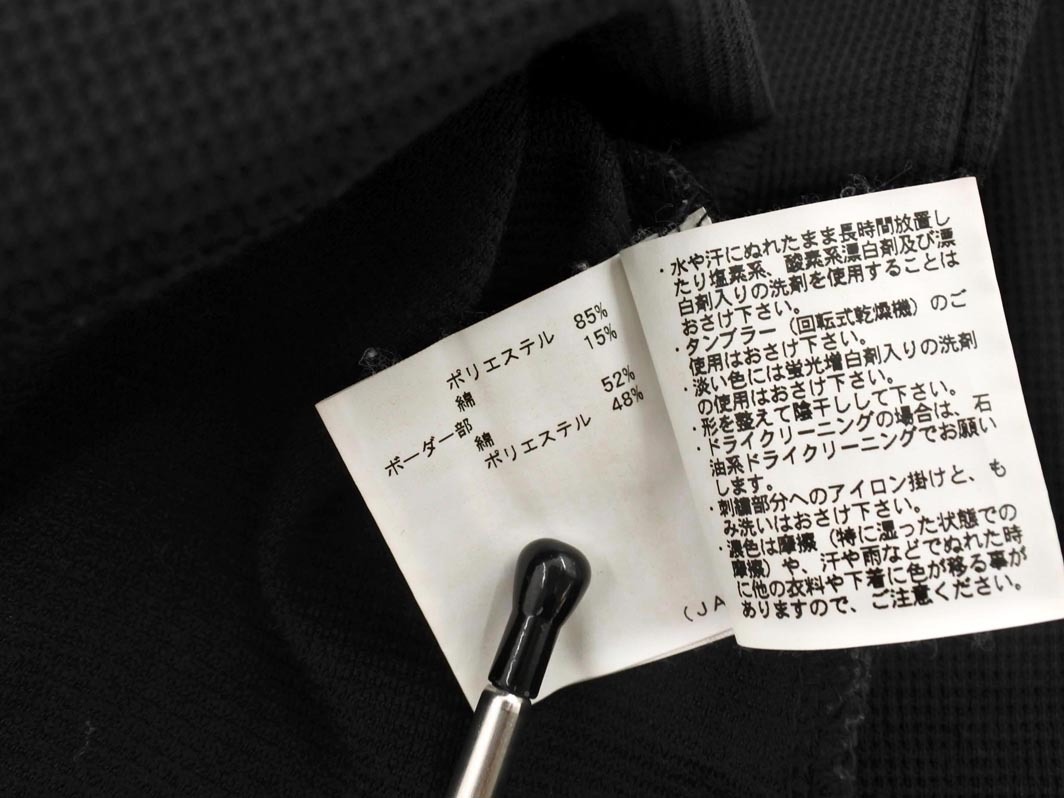 ポリエステル 85%
綿 15%
ボーダー部
綿 52%
ポリエステル 48%
(JA
・水や汗にぬれたまま長時間放置し
たり塩素系、酸素系漂白剤及び漂
白剤入りの洗剤を使用することは
おさけ下さい。
・タンブラー（回転式乾燥機）のご
使用はおさけ下さい。
・淡い色には蛍光増白剤入りの洗剤
の使用はおさけ下さい。
・形を整えて陰干しして下さい。
・ドライクリーニングの場合は、石
油系ドライクリーニングでお願い
します。
・刺繍部分へのアイロン掛けと、も
み洗いはおさけ下さい。
・濃色は摩擦（特に湿った状態での
摩擦）や、汗や雨などでぬれた時
に他の衣料や下着に色が移る事が
ありますので、ご注意ください。